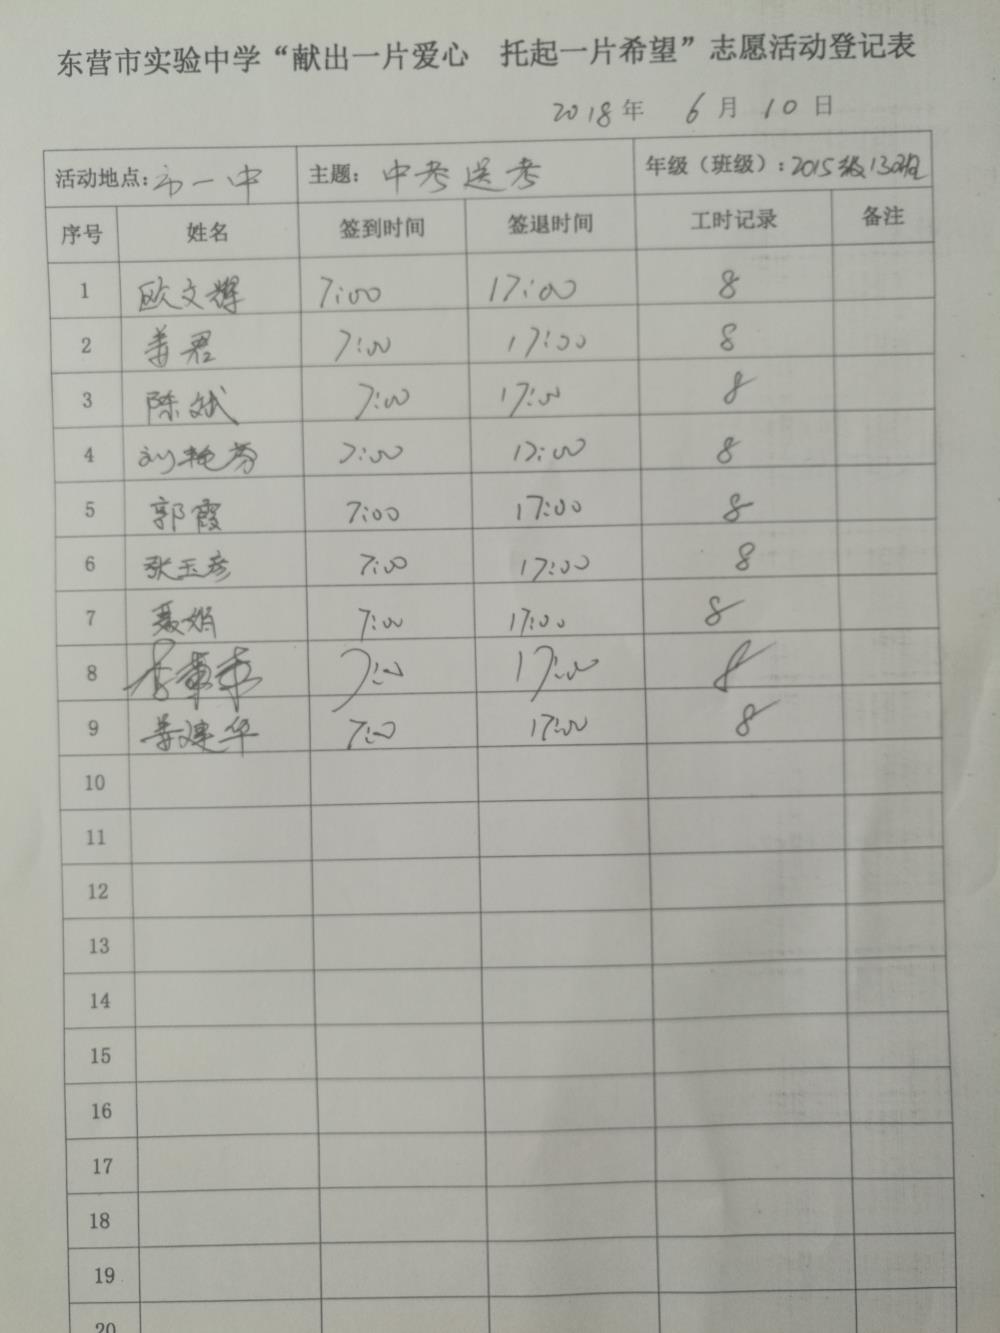 东营市实验中学“献出一片爱心 托起一片希望”志愿活动登记表
2018年 6月10日
活动地点：市一中 主题：中考送考 年级（班级）：2015级13班
序号 姓名 签到时间 签退时间 工时记录 备注
1 欧文辉 7:00 17:00 8
2 姜君 7:00 17:00 8
3 陈斌 7:00 17:00 8
4 刘艳芬 7:00 17:00 8
5 郭霞 7:00 17:00 8
6 张玉彦 7:00 17:00 8
7 聂娟 7:00 17:00 8
8 7:00 17:00 8
9 姜建华 7:00 17:00 8
10
11
12
13
14
15
16
17
18
19
20